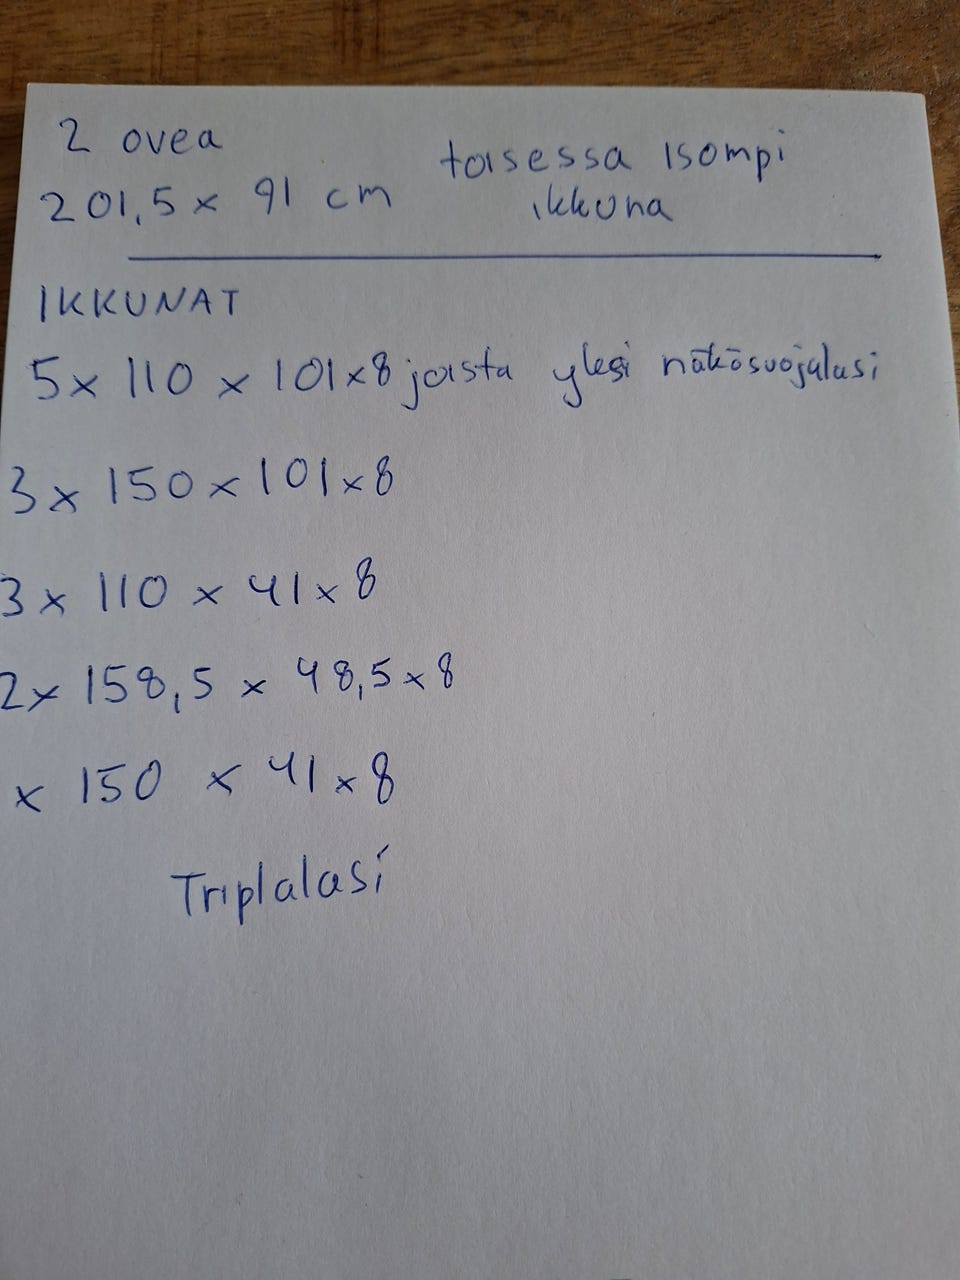 2 ovea
201,5 x 91 cm
toisessa isompi
ikkuna
IKKUNAT
5 x 110 x 101 x 8 joista yksi näkösuojalasi
3 x 150 x 101 x 8
3 x 110 x 41 x 8
2 x 158,5 x 48,5 x 8
x 150 x 41 x 8
Triplalasi